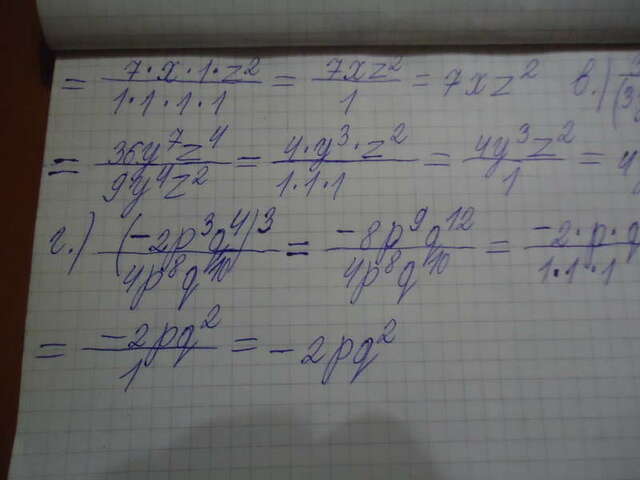 = 7·x·1·z²/1·1·1·1 = 7xz²/1 = 7xz² в.)
= 36y⁷z⁴/9y⁴z² = 4·y³·z²/1·1·1 = 4y³z²/1 = 4
г.) (-2p³q⁴)³/4p⁸q¹⁰ = -8p⁹q¹²/4p⁸q¹⁰ = -2·p·q/1·1·1
= -2pq²/1 = -2pq²